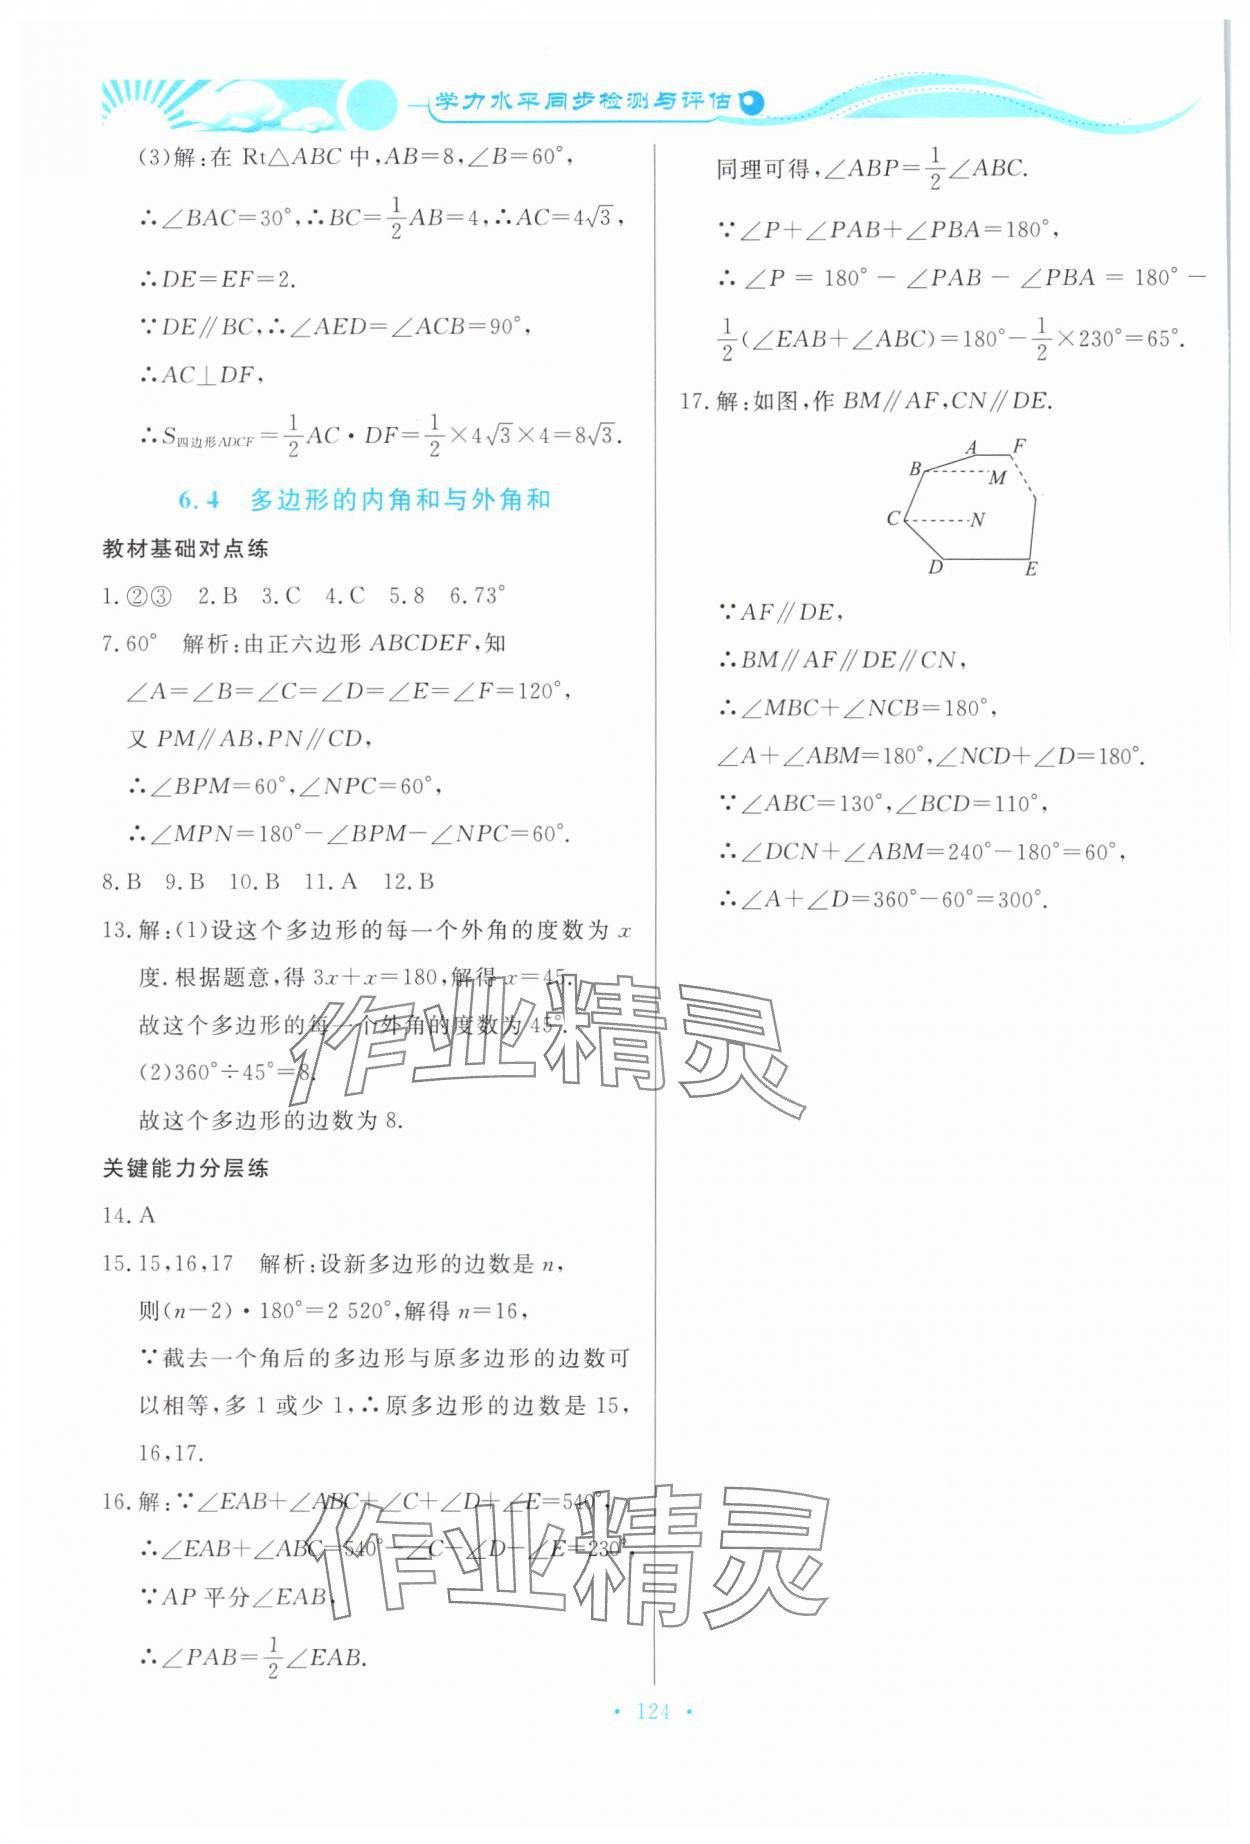 学力水平同步检测与评估
(3)解:在 Rt△ABC 中,AB=8,∠B=60°,
∴∠BAC=30°,∴BC=1/2AB=4,∴AC=4√3,
∴DE=EF=2.
∵DE∥BC,∴∠AED=∠ACB=90°,
∴AC⊥DF,
∴S四边形ADCF=1/2AC·DF=1/2×4√3×4=8√3.
6.4 多边形的内角和与外角和
教材基础对点练
1.②③ 2.B 3.C 4.C 5.8 6.73°
7.60° 解析:由正六边形 ABCDEF,知
∠A=∠B=∠C=∠D=∠E=∠F=120°,
又 PM∥AB,PN∥CD,
∴∠BPM=60°,∠NPC=60°,
∴∠MPN=180°-∠BPM-∠NPC=60°.
8.B 9.B 10.B 11.A 12.B
13.解:(1)设这个多边形的每一个外角的度数为 x
度.根据题意,得 3x+x=180,解得 x=45.
故这个多边形的每一个外角的度数为 45°.
(2)360°÷45°=8.
故这个多边形的边数为 8.
关键能力分层练
14.A
15.15,16,17 解析:设新多边形的边数是 n,
则(n-2)·180°=2 520°,解得 n=16,
∵截去一个角后的多边形与原多边形的边数可
以相等,多 1 或少 1,∴原多边形的边数是 15,
16,17.
16.解:∵∠EAB+∠ABC+∠C+∠D+∠E=540°,
∴∠EAB+∠ABC=540°-∠C-∠D-∠E=230°.
∵AP 平分∠EAB,
∴∠PAB=1/2∠EAB.
同理可得,∠ABP=1/2∠ABC.
∵∠P+∠PAB+∠PBA=180°,
∴∠P=180°-∠PAB-∠PBA=180°-
1/2(∠EAB+∠ABC)=180°-1/2×230°=65°.
17.解:如图,作 BM∥AF,CN∥DE.
A F
B M
C N
D E
∵AF∥DE,
∴BM∥AF∥DE∥CN,
∴∠MBC+∠NCB=180°,
∠A+∠ABM=180°,∠NCD+∠D=180°.
∵∠ABC=130°,∠BCD=110°,
∴∠DCN+∠ABM=240°-180°=60°,
∴∠A+∠D=360°-60°=300°.
作业精灵
作业精灵
·124·